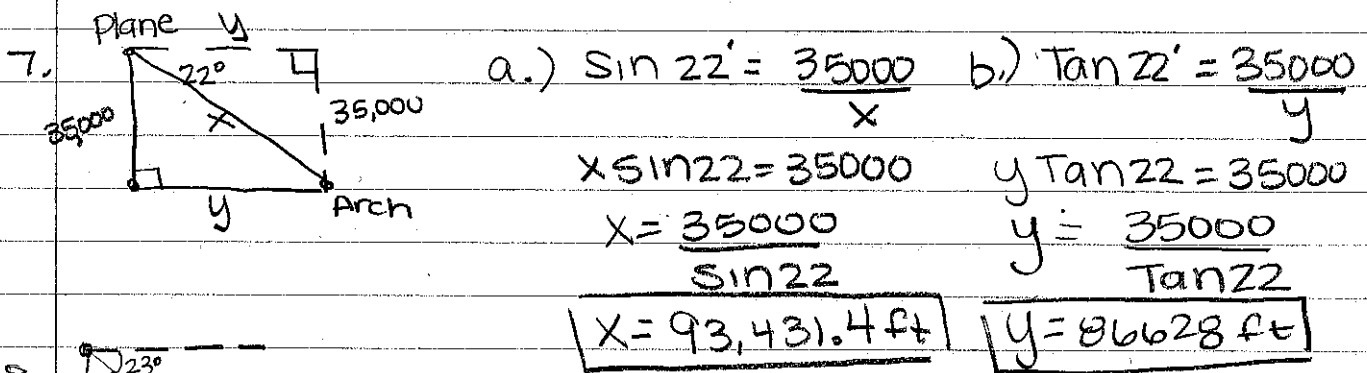 Plane y
7.
22°
35,000
x
35,000
y
Arch
a.) Sin 22° = 35000 / x
x sin22 = 35000
x = 35000 / sin22
x = 93,431.4 ft
b.) Tan 22° = 35000 / y
y Tan22 = 35000
y = 35000 / Tan22
y = 86628 ft
23°